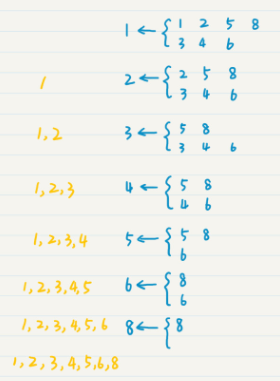 1 ← { 1 2 5 8
3 4 6
1
2 ← { 2 5 8
3 4 6
1, 2
3 ← { 5 8
3 4 6
1, 2, 3
4 ← { 5 8
4 6
1, 2, 3, 4
5 ← { 5 8
6
1, 2, 3, 4, 5
6 ← { 8
6
1, 2, 3, 4, 5, 6
8 ← { 8
1, 2, 3, 4, 5, 6, 8